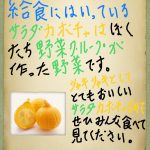 給食にはいっている
サラダカボチャはぼく
たち野菜グループが
作った野菜です。
シャキシャキとして
とてもおいしい
サラダカボチャ
ぜひみな食べて
見てください。